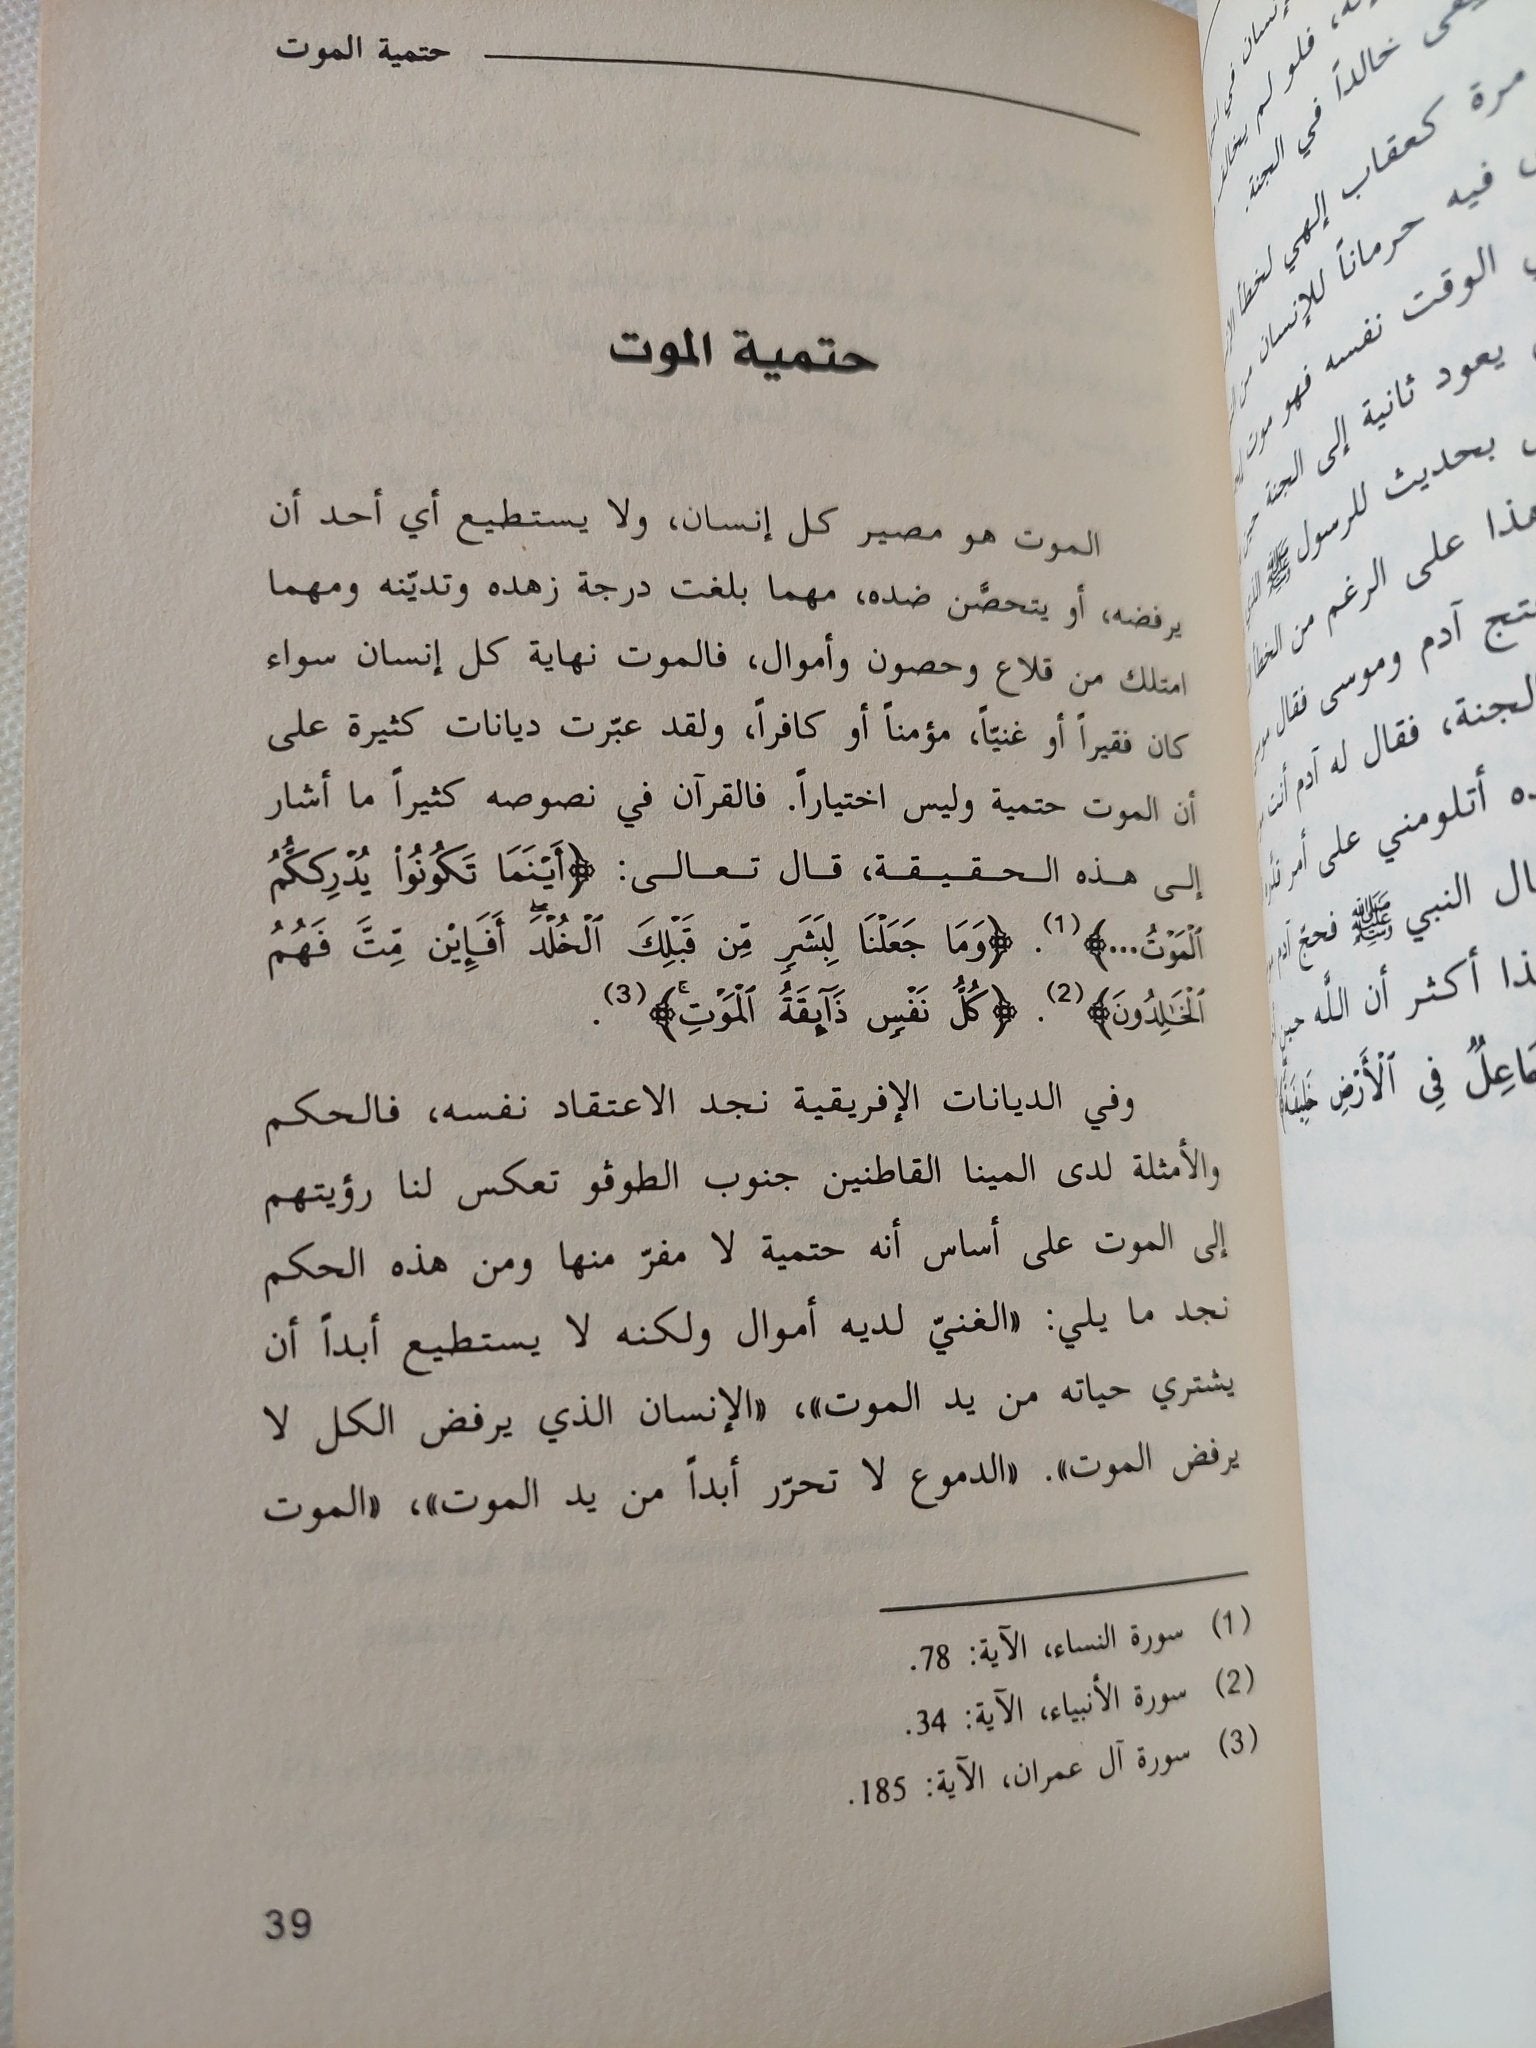 حتمية الموت
حتمية الموت
الموت هو مصير كل إنسان، ولا يستطيع أي أحد أن
يرفضه، أو يتحصَّن ضده، مهما بلغت درجة زهده وتديّنه ومهما
امتلك من قلاع وحصون وأموال، فالموت نهاية كل إنسان سواء
كان فقيراً أو غنيّاً، مؤمناً أو كافراً، ولقد عبّرت ديانات كثيرة على
أن الموت حتمية وليس اختياراً. فالقرآن في نصوصه كثيراً ما أشار
إلى هذه الحقيقة، قال تعالى: ﴿أَيْنَمَا تَكُونُوا۟ يُدْرِككُّمُ
ٱلْمَوْتُ...﴾(1). ﴿وَمَا جَعَلْنَا لِبَشَرٍ مِّن قَبْلِكَ ٱلْخُلْدَۖ أَفَإِي۟ن مِّتَّ فَهُمُ
ٱلْخَٰلِدُونَ﴾(2). ﴿كُلُّ نَفْسٍ ذَآئِقَةُ ٱلْمَوْتِۗ﴾(3).
وفي الديانات الإفريقية نجد الاعتقاد نفسه، فالحكم
والأمثلة لدى المينا القاطنين جنوب الطوڤو تعكس لنا رؤيتهم
إلى الموت على أساس أنه حتمية لا مفرّ منها ومن هذه الحكم
نجد ما يلي: «الغنيّ لديه أموال ولكنه لا يستطيع أبداً أن
يشتري حياته من يد الموت»، «الإنسان الذي يرفض الكل لا
يرفض الموت». «الدموع لا تحرّر أبداً من يد الموت»، «الموت
(1) سورة النساء، الآية: 78.
(2) سورة الأنبياء، الآية: 34.
(3) سورة آل عمران، الآية: 185.
39
فلو لم
خالداً في الجنة.
مرة كعقاب إلهي لخطأ
فيه حرماناً للإنسان من
الوقت نفسه فهو موت
يعود ثانية إلى الجنة
بحديث للرسول ﷺ
هذا على الرغم من الخطأ
آدم وموسى فقال
الجنة، فقال له آدم أنت
أتلومني على أمر
النبي ﷺ فحجّ آدم
أكثر أن اللَّه حين
فِي ٱلْأَرْضِ خَلِيفَةً